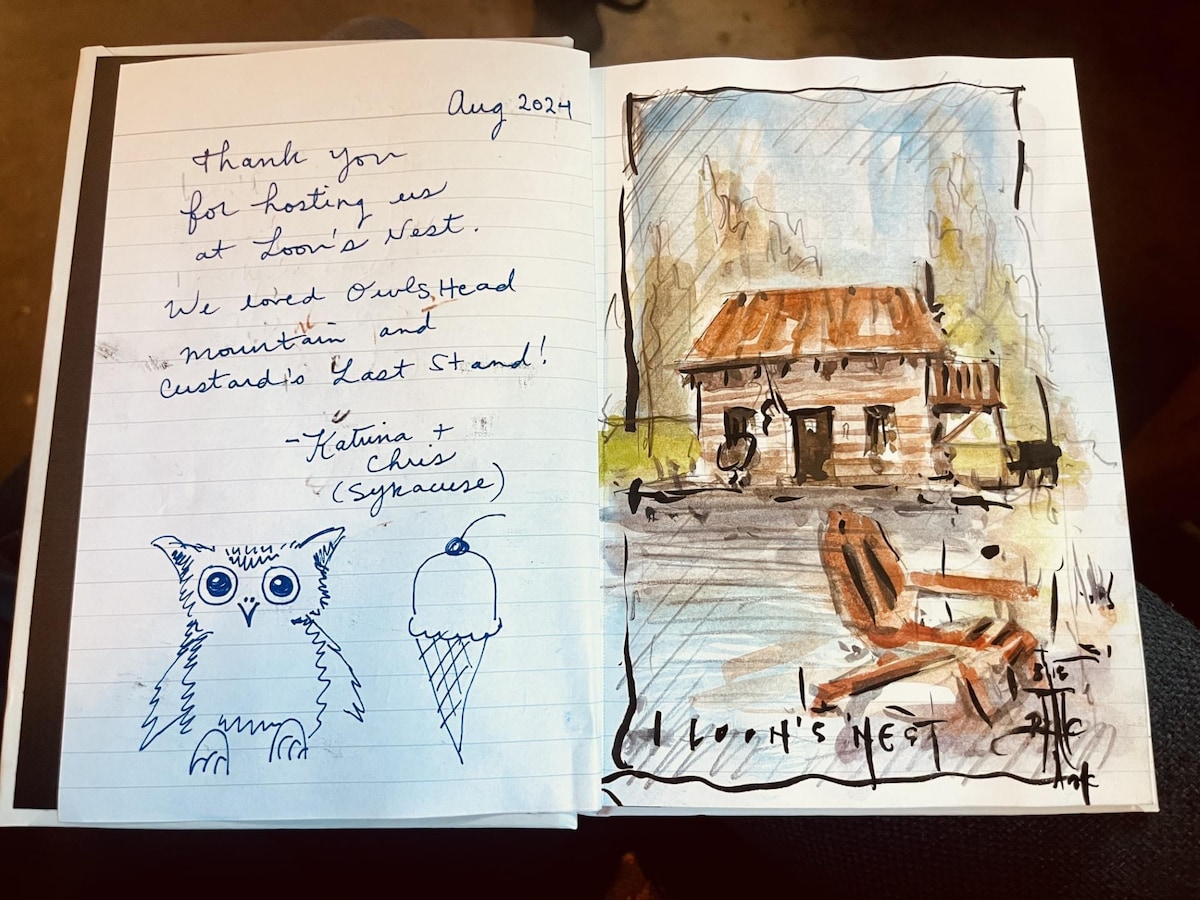 Aug 2024
Thank you
for hosting us
at Loon's Nest.
We loved Owls Head
mountain and
Custard's Last Stand!
-Katrina +
Chris
(Syracuse)
LOON'S NEST